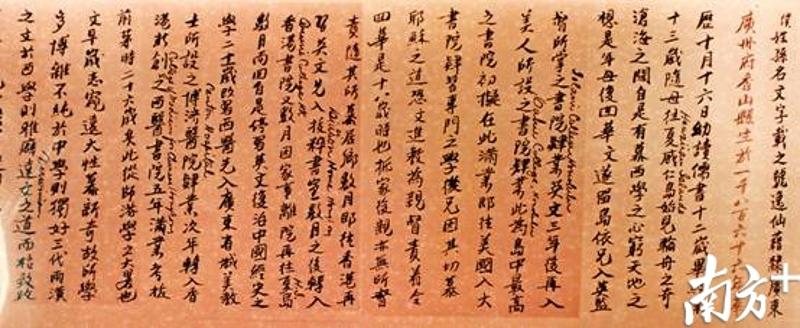 僕姓孫名文字載之號逸仙藉隸廣東
廣州府香山縣生於一千八百六十六年華
歷十月十六日幼讀儒書十二歲畢
十三歲隨母往夏威仁島始見輪舟之奇
Hawaiian Islands
滄海之闊自是有慕西學之心窮天地之
想是年母復回華文遂留島依兄入英監
督所掌之書院肄業英文三年後再入
Iolani College, Honolulu
美人所設之書院肄業此為島中最高
Oahu College, Honolulu
之書院初擬在此滿業即往美國入大
書院肄習專門之學後兄因其切慕
耶穌之道恐文進教為親督責着令
回華是十八歲時也抵家後親亦無所督
責隨其所慕居鄉數月即往香港再
習英文先入拔粹書室數月之後轉入
Home
香港書院又數月因家事離院再往夏島
College
數月而回自是停習英文復治中國經史之
學二十一歲改習西醫先入廣東省城美教
士所設之博濟醫院肄業次年轉入香
Canton Hospital
港新創之西醫書院五年滿業考拔
College of Medicine for Chinese
前茅時二十六歲矣此從師游學之大畧也
文早歲志窺遠大性慕新奇故所學
多博雜不純於中學則獨好三代兩漢
之文於西學則雅癖達文之道而格致政
Darwinism
南方+